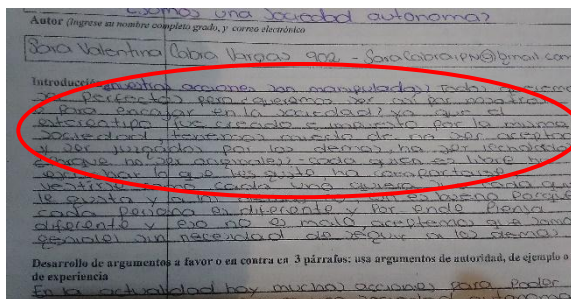 ¿Somos una sociedad autonoma?
Autor (Ingrese su nombre completo grado, y correo electrónico
Sara Valentina Cabra Vargas 902 - SaraCabraIPN@gmail.com
Introducción ¿nuestras acciones son manipuladas? Todos queremos
ser perfectos pero ¿queremos ser así por nosotros
o para encajar en la sociedad? ya que el
estereotipo fue creado e impuesto por la misma
sociedad, tenemos miedo de no ser aceptados
y ser juzgados por los demas, ha ser rechazados
aunque no ser originales - cada quien es libre ha
escuchar lo que les guste, ha comportarse
vestirse como cada uno quiera
le gusta y a los es bueno porque
cada persona es diferente y por ende piensa
diferente y eso no es malo aceptemos que somos
geniales sin necesidad de seguir a los demas.
Desarrollo de argumentos a favor o en contra en 3 párrafos: usa argumentos de autoridad, de ejemplo o
de experiencia
En la actualidad hay muchas acciones para poder